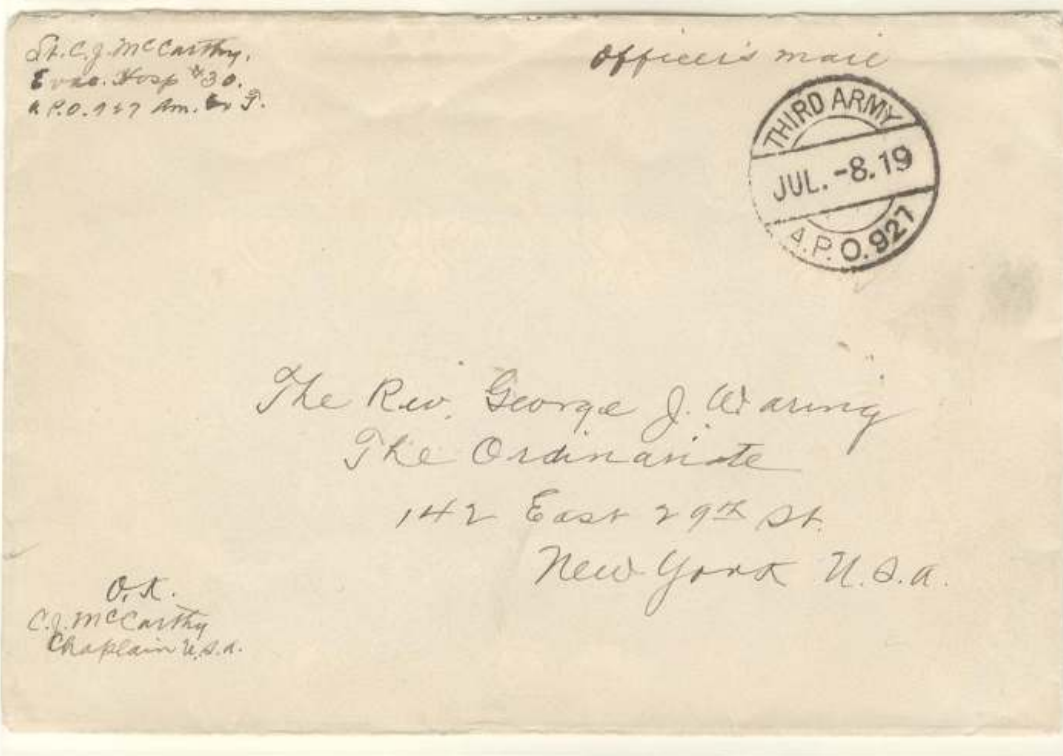 Lt. C. J. McCarthy.
Evac. Hosp #30.
A.P.O. 927 Am. E. F.
Officer's mail
THIRD ARMY
JUL.-8.19
A.P.O. 927
The Rev. George J. Waring
The Ordinariate
142 East 29th St.
New York U.S.A.
O.K.
C.J. McCarthy
Chaplain U.S.A.